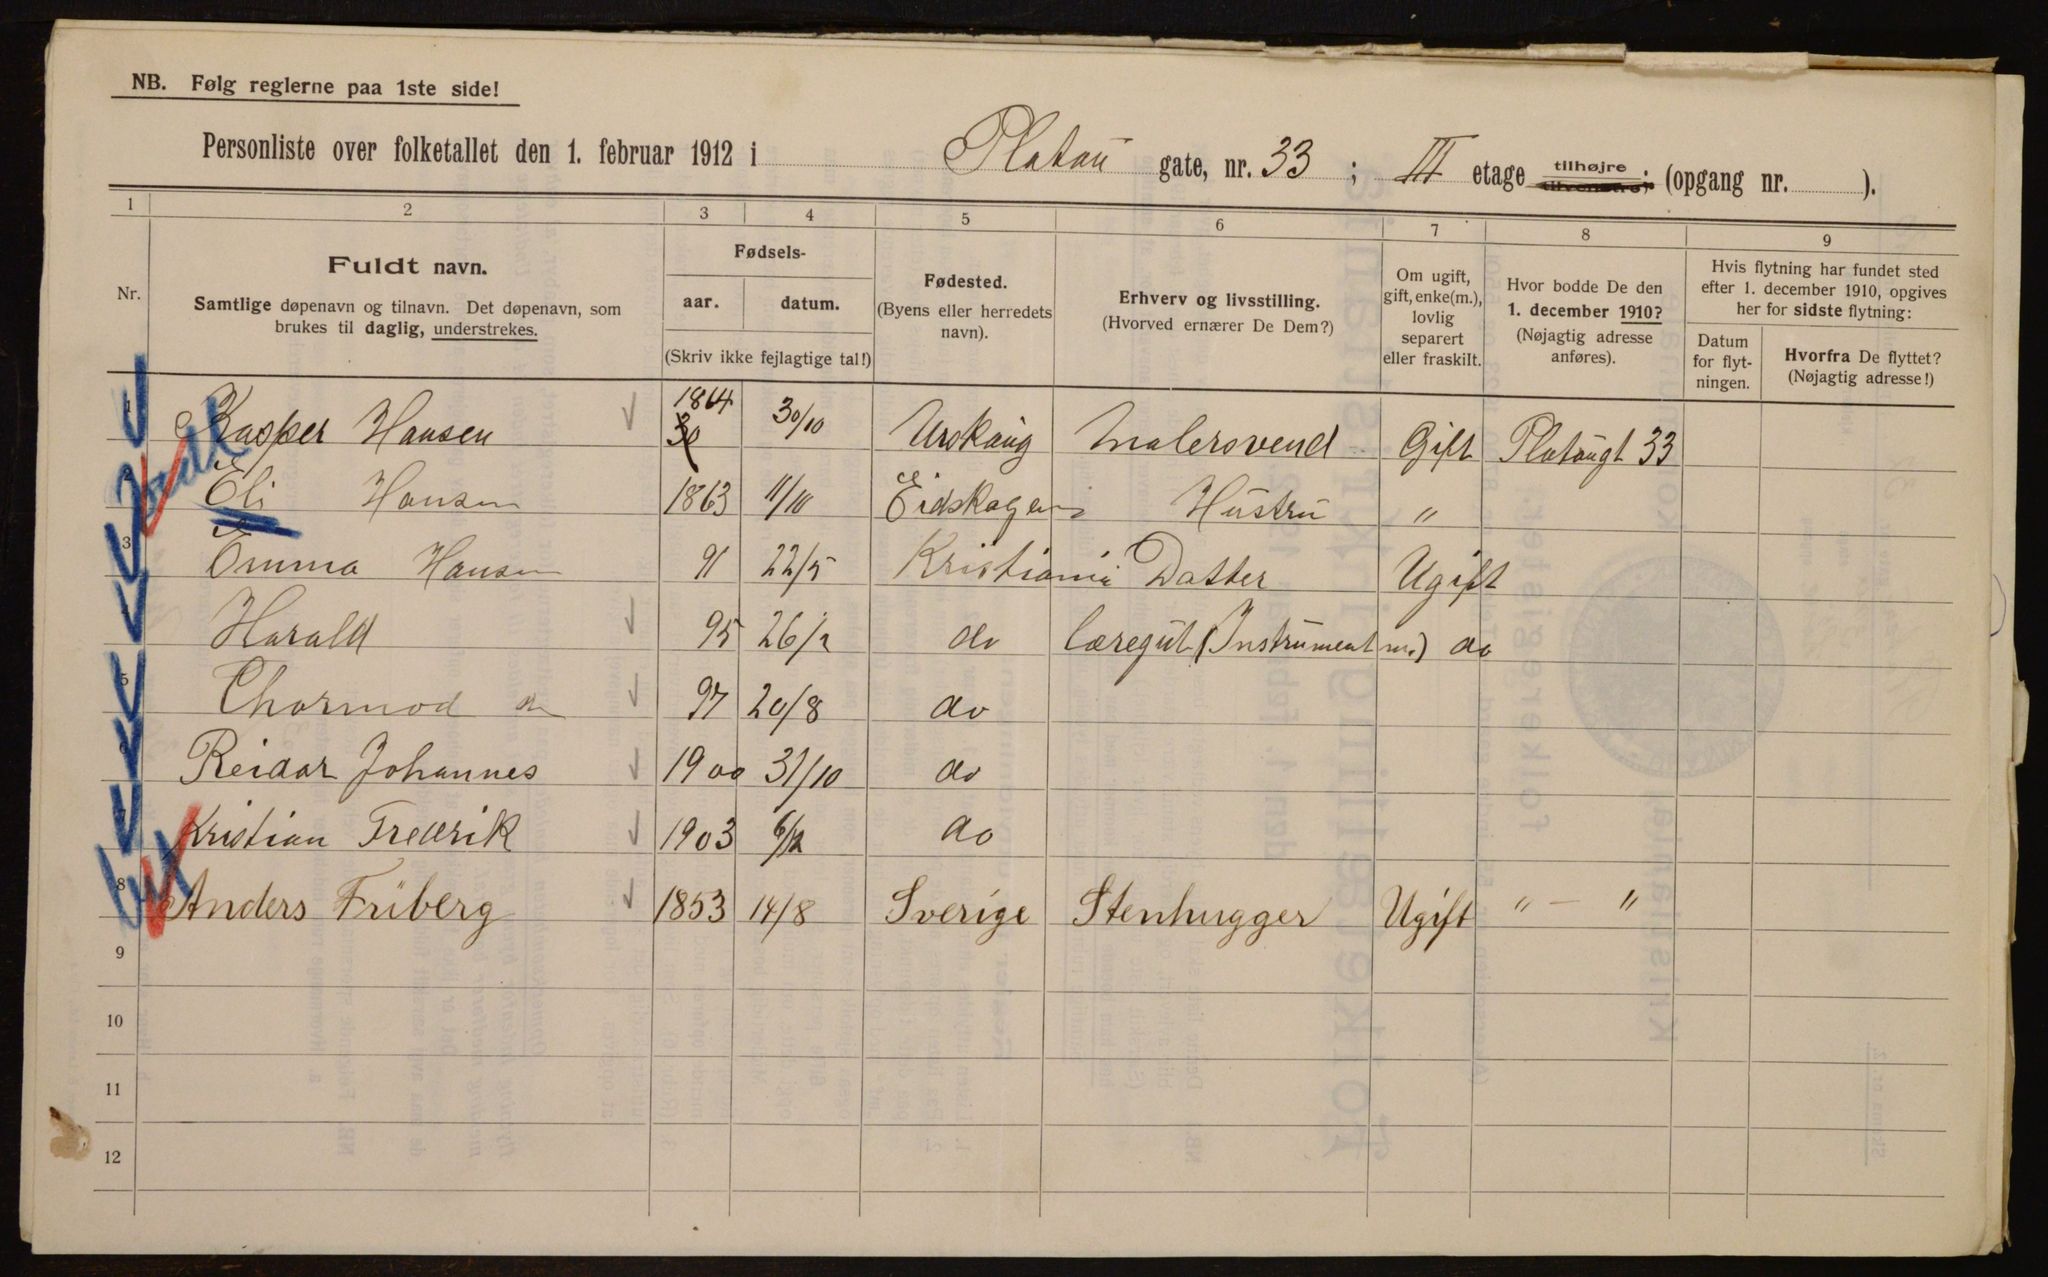 NB. Følg reglerne paa 1ste side!
Personliste over folketallet den 1. februar 1912 i Platou gate, nr. 33 ; III etage tilhøjre tilvenstre; (opgang nr. ).
1 2 3 4 5 6 7 8 9
Nr.
Fuldt navn.
Samtlige døpenavn og tilnavn. Det døpenavn, som
brukes til daglig, understrekes.
Fødsels-
aar. datum.
(Skriv ikke fejlagtige tal!)
Fødested.
(Byens eller herredets
navn).
Erhverv og livsstilling.
(Hvorved ernærer De Dem?)
Om ugift,
gift, enke(m.),
lovlig
separert
eller fraskilt.
Hvor bodde De den
1. december 1910?
(Nøjagtig adresse
anføres).
Hvis flytning har fundet sted
efter 1. december 1910, opgives
her for sidste flytning:
Datum
for flyt-
ningen.
Hvorfra De flyttet?
(Nøjagtig adresse!)
1 Kasper Hansen 1864 30/10 Urskaug Malersvend Gift Platougt 33
2 Eli Hansen 1863 11/10 Eidskogen Hustru "
3 Emma Hansen 91 22/5 Kristiania Datter Ugift
4 Harald 95 26/2 do læregut (Instrumentm.) do
5 Thormod do 97 20/8 do
6 Reidar Johannes 1900 31/10 do
7 Kristian Fredrik 1903 6/12 do
8 Anders Friberg 1853 14/8 Sverige Stenhugger Ugift " — "
9
10
11
12